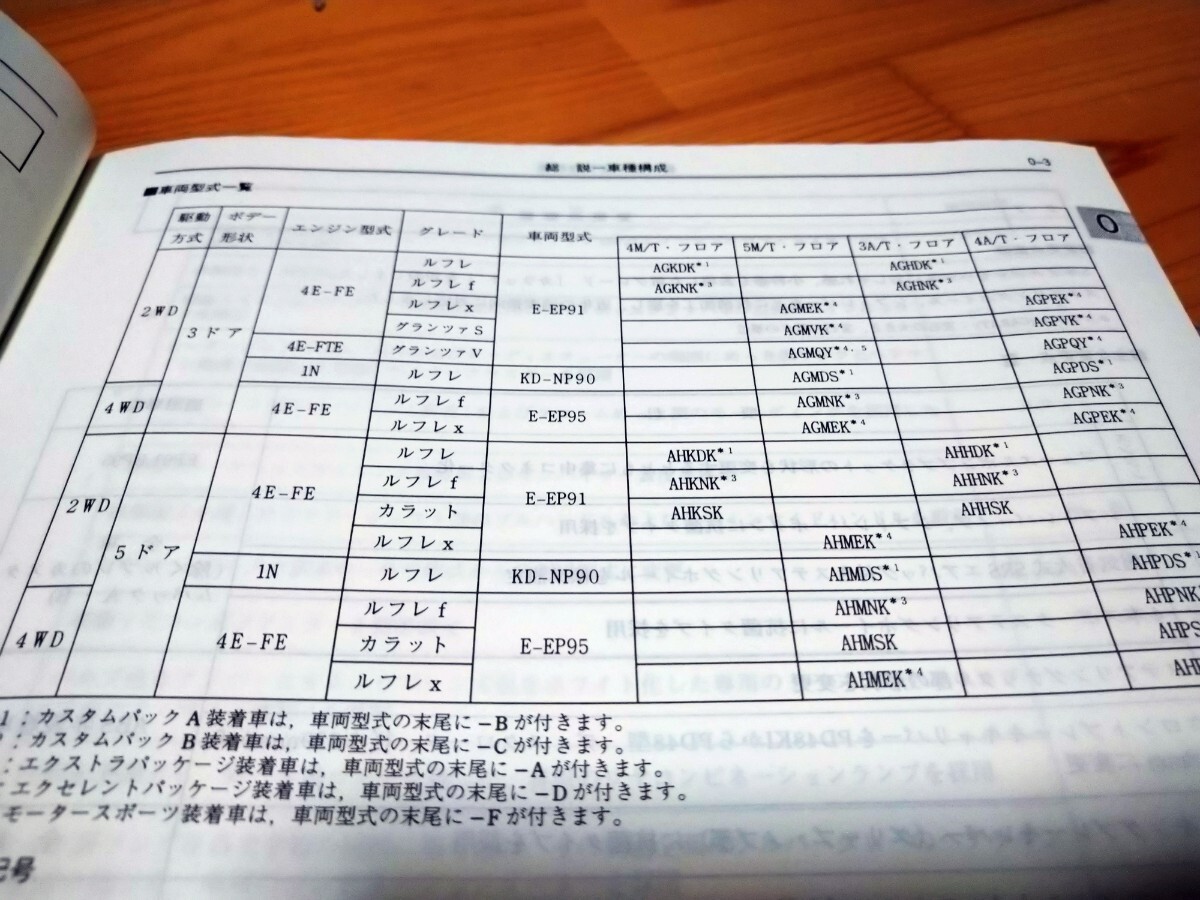 総 説－車種構成
0-3
■車両型式一覧
0
駆動方式 ボデー形状 エンジン型式 グレード 車両型式
4M/T・フロア 5M/T・フロア 3A/T・フロア 4A/T・フロア
2WD 3ドア 4E-FE ルフレ E-EP91 AGKDK*1 AGHDK*1
ルフレf AGKNK*3 AGHNK*3
ルフレx AGMEK*4 AGPEK*4
グランツァS AGMVK*4 AGPVK*4
4E-FTE グランツァV AGMQY*4. 5 AGPQY*4
1N ルフレ KD-NP90 AGMDS*1 AGPDS*1
4WD 4E-FE ルフレf E-EP95 AGMNK*3 AGPNK*3
ルフレx AGMEK*4 AGPEK*4
2WD 5ドア 4E-FE ルフレ E-EP91 AHKDK*1 AHHDK*1
ルフレf AHKNK*3 AHHNK*3
カラット AHKSK AHHSK
ルフレx AHMEK*4 AHPEK*4
1N ルフレ KD-NP90 AHMDS*1 AHPDS*1
4WD 4E-FE ルフレf E-EP95 AHMNK*3 AHPNK
カラット AHMSK AHPS
ルフレx AHMEK*4
1：カスタムパックA装着車は，車両型式の末尾に－Bが付きます。
：カスタムパックB装着車は，車両型式の末尾に－Cが付きます。
：エクストラパッケージ装着車は，車両型式の末尾に－Aが付きます。
エクセレントパッケージ装着車は，車両型式の末尾に－Dが付きます。
モータースポーツ装着車は，車両型式の末尾に－Fが付きます。
記号